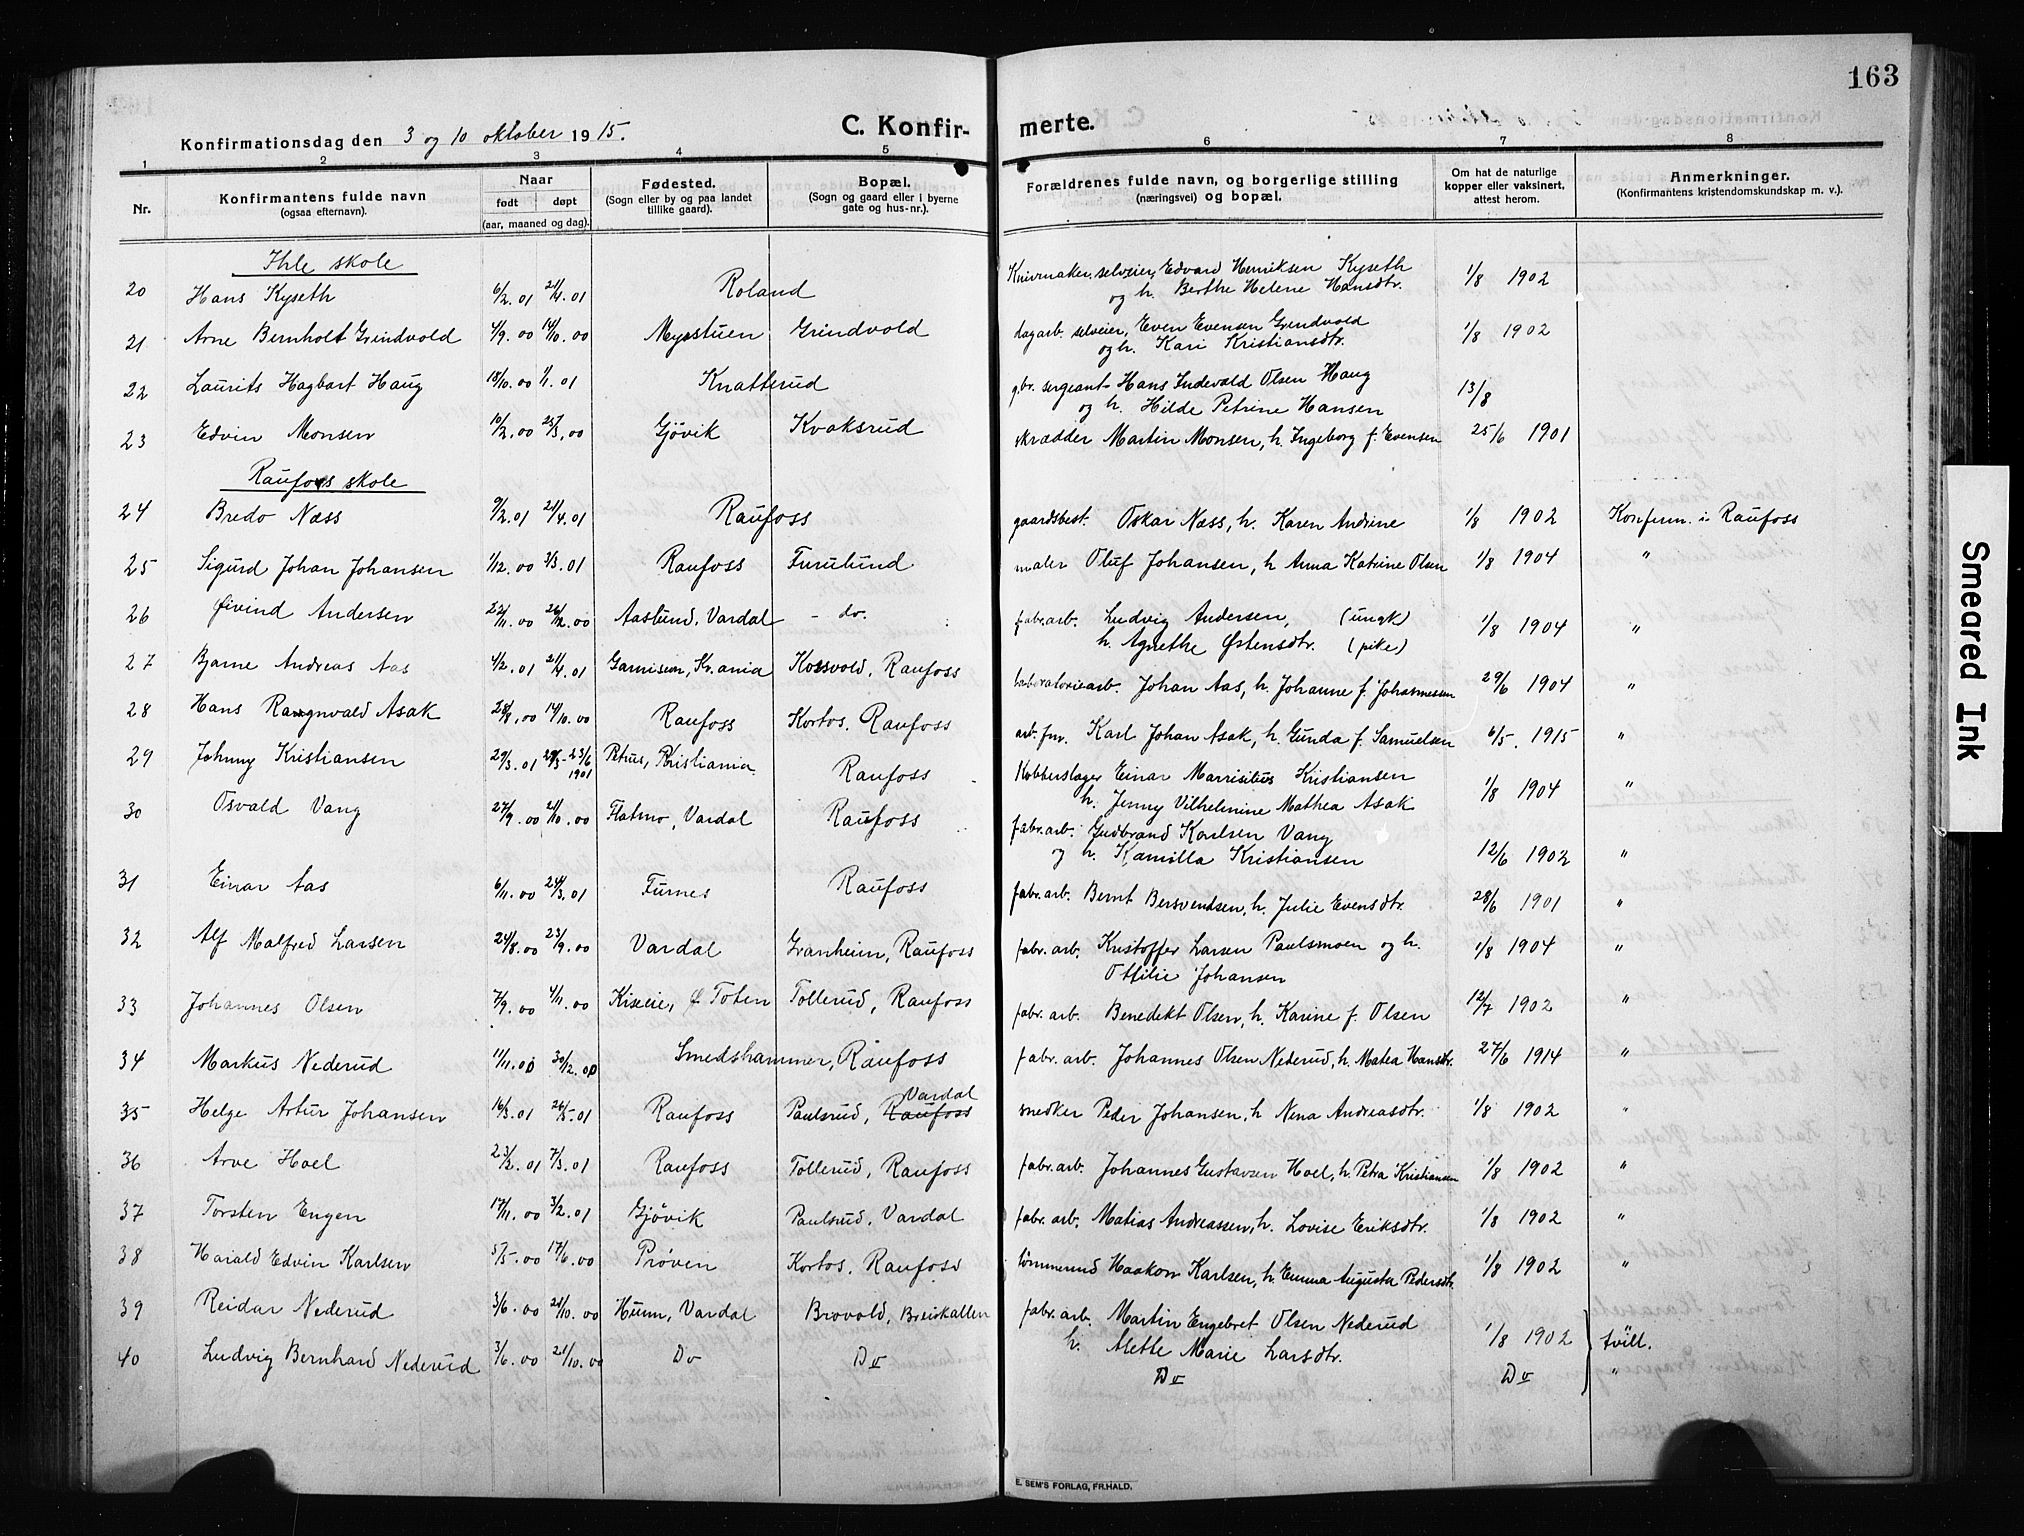 163
Konfirmationsdag den 3 og 10 oktober 1915. C. Konfir- merte.
1 2 3 4 5 6 7 8
Nr. Konfirmantens fulde navn (ogsaa efternavn). Naar født døpt (aar, maaned og dag). Fødested. (Sogn eller by og paa landet tillike gaard). Bopæl. (Sogn og gaard eller i byerne gate og hus-nr.). Forældrenes fulde navn, og borgerlige stilling (næringsvei) og bopæl. Om hat de naturlige kopper eller vaksinert, attest herom. Anmerkninger. (Konfirmantens kristendomskundskap m. v.).
Ihle skole
20 Hans Kyseth 6/2.01 21/4.01 Roland Knivmaker, selveier, Edvard Henriksen Kyseth 1/8 1902
og h. Berthe Helene Hansdtr.
21 Arne Bernholt Grindvold 4/9.00 14/10.00 Myrstuen Grindvold dagarb. selveier, Even Evensen Grindvold 1/8 1902
og h. Kari Kristiansdtr.
22 Laurits Hagbart Haug 18/10.00 1/1.01 Knatterud gbr. sergeant Hans Indevald Olsen Haug 13/8
og h. Hilde Petrine Hansen
23 Edvin Monsen 10/2.00 25/3.00 Gjövik Kvaksrud skrædder Martin Monsen, h. Ingeborg f. Evensen 25/6 1901
Raufoss skole
24 Bredo Næss 9/2.01 21/4.01 Raufoss gaardsbest. Oskar Næss, h. Karen Andrine 1/8 1902 Konferm. i Raufoss
25 Sigurd Johan Johansen 1/12.00 3/3.01 Raufoss Furulund maler Oluf Johansen, h Anna Katrine Olsen 1/8 1904 "
26 Øivind Andersen 22/11.00 26/12.00 Aaslund, Vardal - do. fabr.arb. Ludvig Andersen, (ungk) 1/8 1904 "
h. Agnethe Østensdtr. (pike)
27 Bjarne Andreas Aas 4/2.01 21/4.01 Garnisen, Kr.ania Kossvold, Raufoss laboratoriearb. Johan Aas, h. Johanne f. Johannessen 29/6 1904 "
28 Hans Rangnvald Asak 28/8.00 14/10.00 Raufoss Kortos. Raufoss arb. fnv. Karl Johan Asak, h. Gunda f. Samuelsen 6/5. 1915 "
29 Johnny Kristiansen 29/3.01 23/6 1901 Petrus, Kristiania Raufoss Kobberslager Einar Kristiansen 1/8 1904 "
h. Jenny Vilhelmine Mathea Asak
30 Osvald Vang 27/9.00 21/10.00 Flatmo, Vardal Raufoss fabr.arb. Gudbrand Karlsen Vang
og h. Kamilla Kristiansen 12/6 1902 "
31 Einar Aas 6/11.00 24/3.01 Furnes Raufoss fabr.arb. Bernt Bersvendsen, h. Julie Evensdtr. 28/6 1901 "
32 Alf Malfred Larsen 24/8.00 23/9.00 Vardal Granheim, Raufoss fabr. arb. Kristoffer Larsen Paulsmoen og h. 1/8 1904 "
Ottilie Johansen
33 Johannes Olsen 7/9.00 4/11.00 Kiseie, Ø Toten Tollerud, Raufoss fabr. arb. Benedikt Olsen, h. Karine f. Olsen 12/7 1902 "
34 Markus Nederud 11/11.00 30/12.00 Smedshammer, Raufoss fabr. arb. Johannes Olsen Nederud, h. Matea Hansdtr. 27/6 1914 "
35 Helge Artur Johansen 16/3.01 26/5.01 Raufoss Paulsrud, Raufoss Vardal snedker Peder Johansen, h Nena Andreasdtr. 1/8 1902 "
36 Arve Hoel 23/2.01 7/3.01 Raufoss Tollerud, Raufoss fabr.arb. Johannes Gustavsen Hoel, h. Petra Kristiansen 1/8 1902 "
37 Torsten Engen 17/11.00 3/2.01 Gjövik Paulsrud, Vardal fabr. arb. Matias Andreassen, h. Lovise Eriksdtr. 1/8 1902 "
38 Harald Edvin Karlsen 5/5.00 17/6.00 Prøven Kortos. Raufoss tömmermd Haakon Karlsen, h. Emma Augusta Pedersdtr. 1/8 1902 "
39 Reidar Nederud 3/6.00 21/10.00 Hunn, Vardal Brovold, Breiskallen fabr. arb. Martin Engebret Olsen Nederud 1/8 1902 tvill.
h. Alette Marie Larsdtr.
40 Ludvig Bernhard Nederud 3/6.00 21/10.00 Do Do Do Do "
E. SEM'S FORLAG, FR.HALD.
Smeared Ink